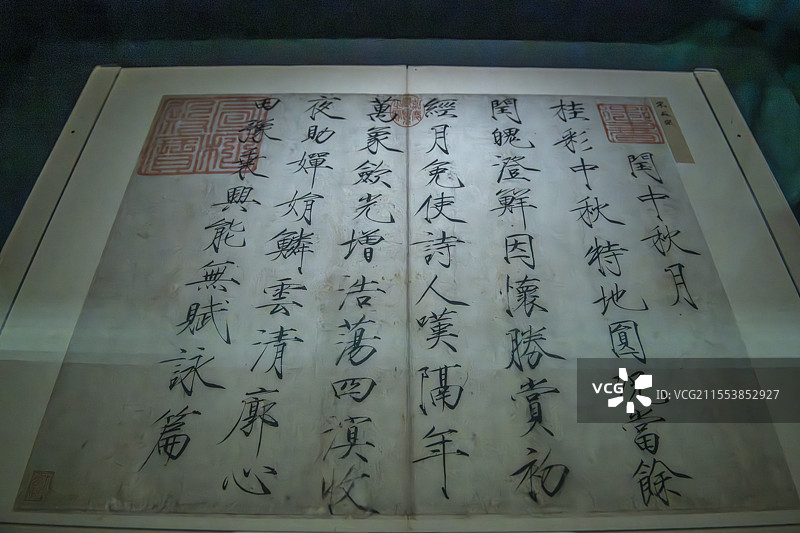 閏中秋月
桂彩中秋特地圓當餘
閏魄澄鮮因懷勝賞初
經月免使詩人嘆隔年
萬象歛光增浩蕩四溟收
夜助嬋娟鱗雲清廓心
田豫乘興能無賦詠篇
VCG
VCG211553852927